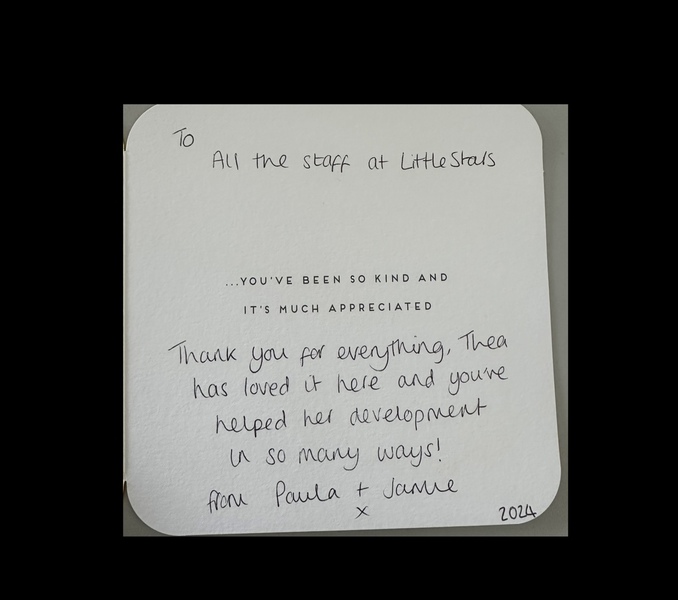 To
All the staff at Little Stars
...YOU'VE BEEN SO KIND AND
IT'S MUCH APPRECIATED
Thank you for everything, Thea
has loved it here and you've
helped her development
in so many ways!
from Paula + Jamie
x
2024